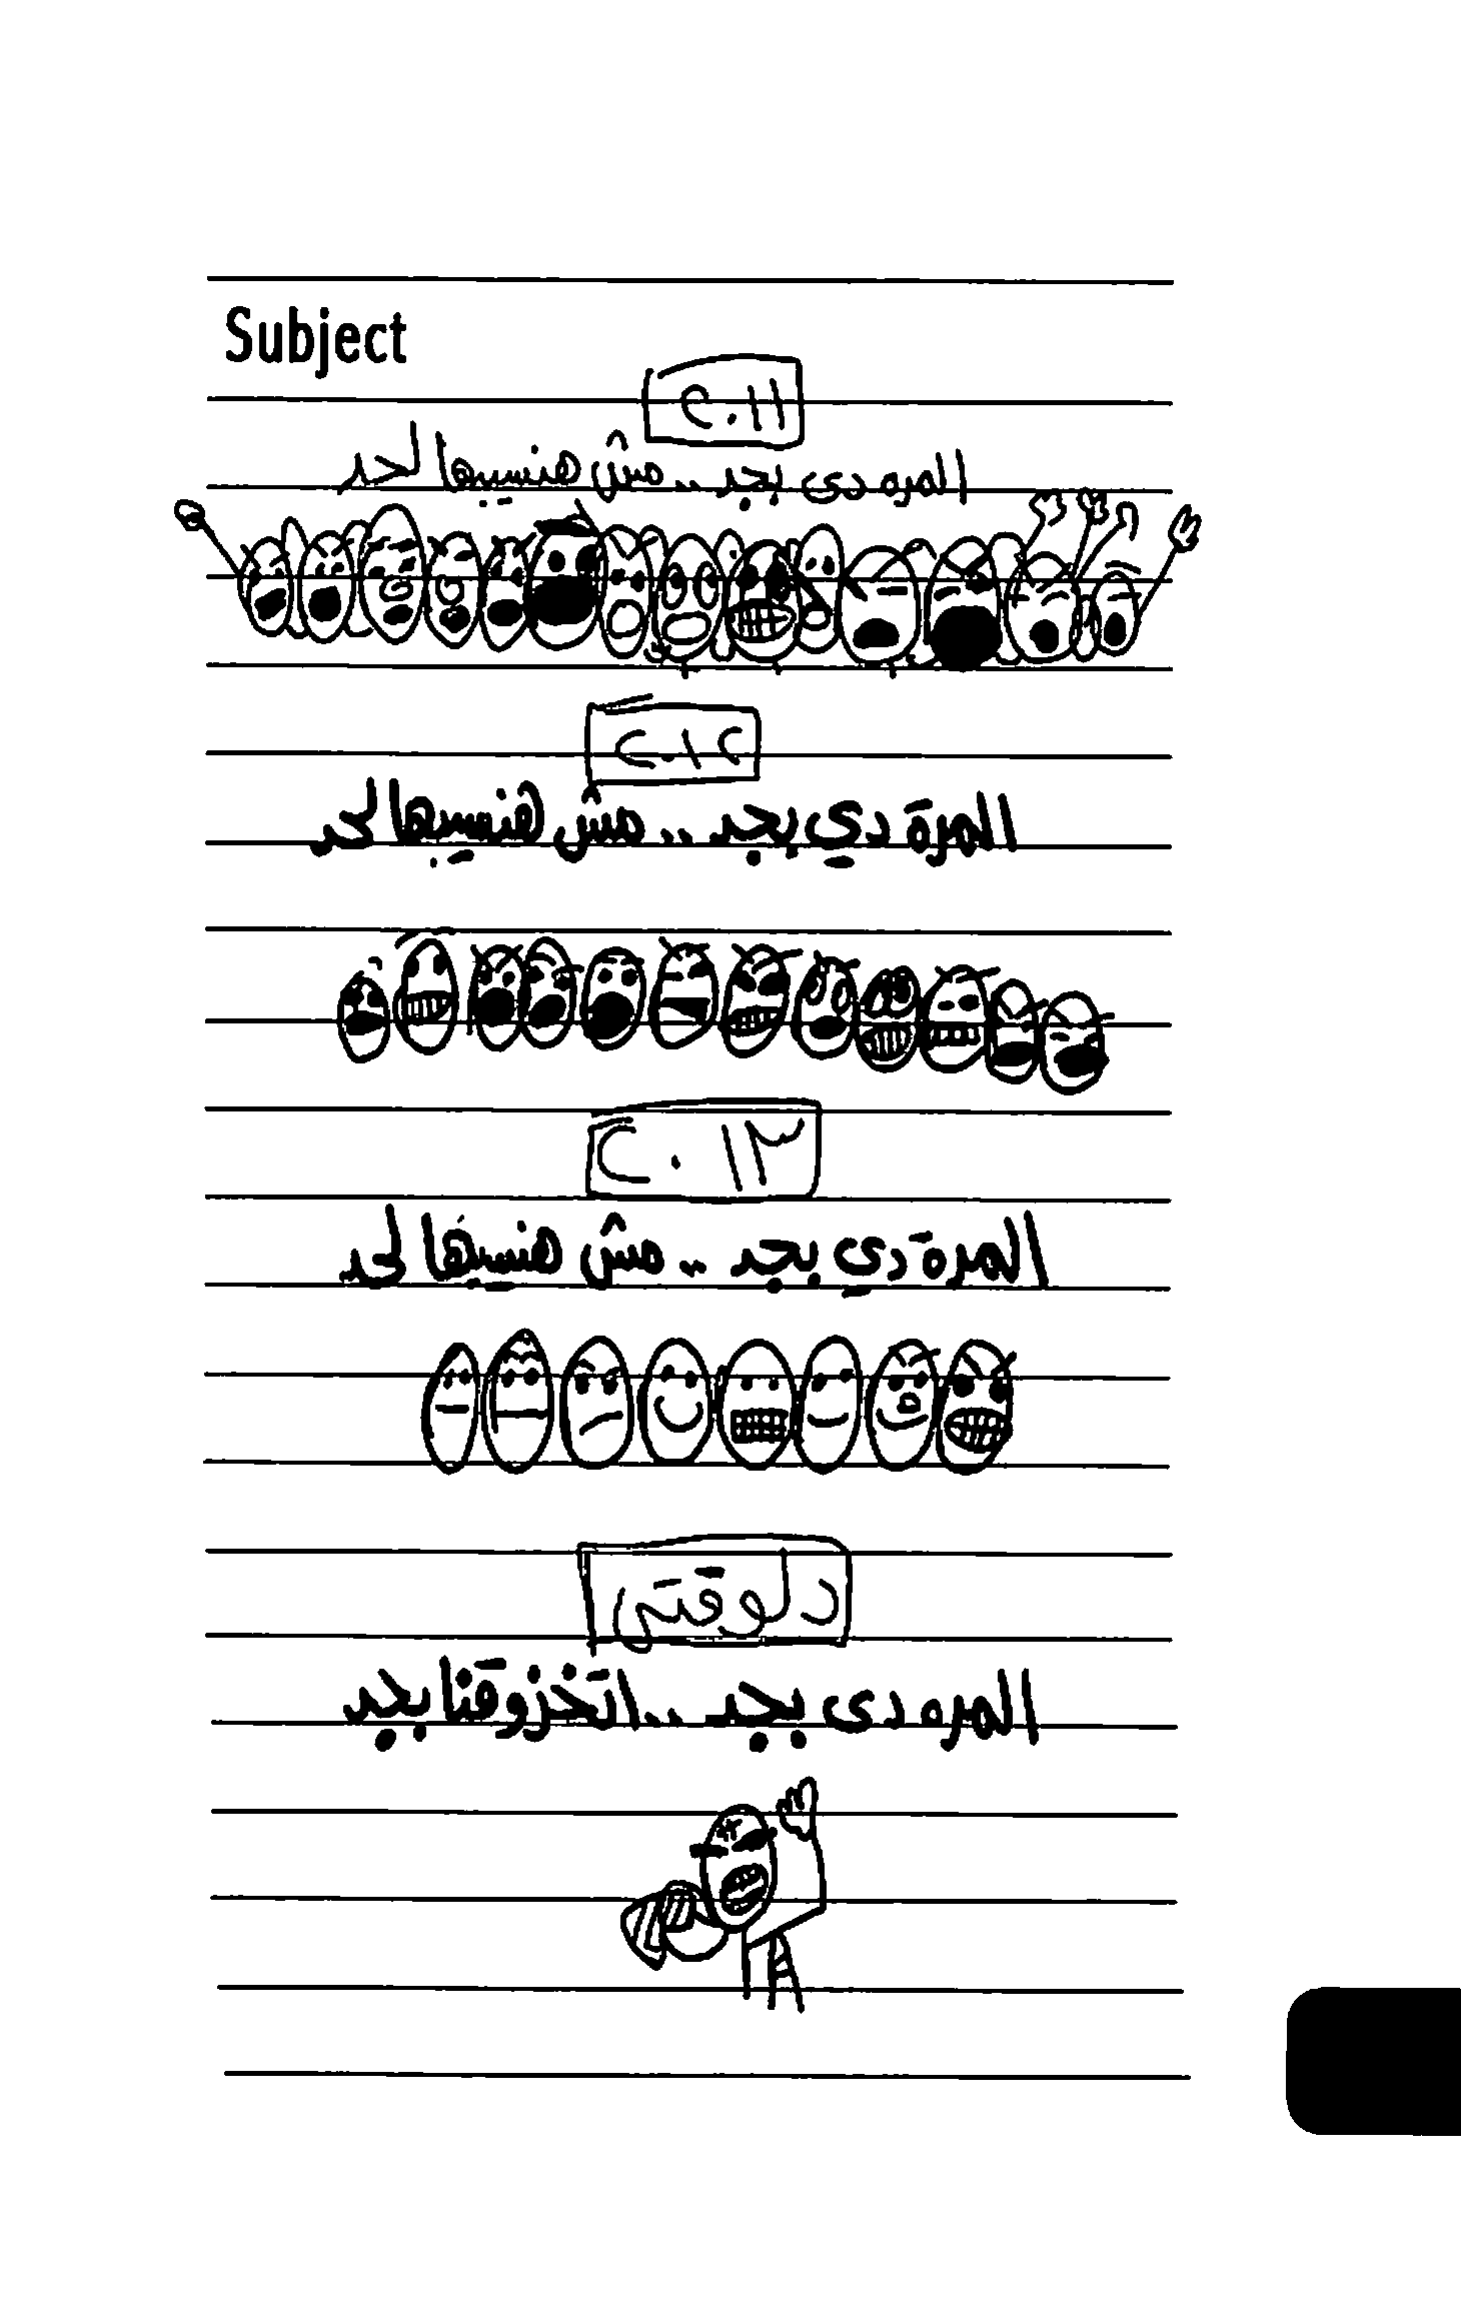 Subject
٢٠١١
المره دى بجد .. مش هنسيبها لحد
٢٠١٢
المرة دي بجد .. مش هنسيبها لحد
٢٠١٣
المرة دي بجد .. مش هنسيبها لحد
دلوقتى
المره دى بجد .. اتخزوقنا بجد